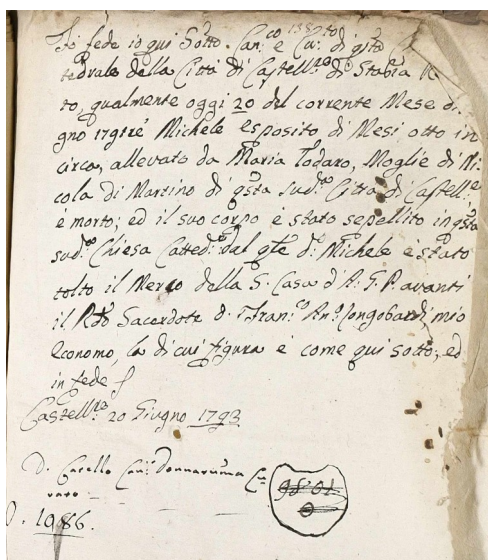 Fo fede io qui Sotto. Can:co e Cu: di qsta
tedrale della Città di Castell:re di Stabia
to, qualmente oggi 20 del corrente Mese di
gno 1793 Michele esposito di Mesi otto in
circa, allevato da Maria Todaro, Moglie di Ni
cola di Martino di qsta sud:a Città di Castell:re
è morto; ed il suo corpo è stato sepellito in qsta
sud:a Chiesa Catted:le dal qle d:o Michele è stato
tolto il Merco della S. Casa d'A. G. P. avanti
il Rdo Sacerdote D. Fran:co An:o Longobardi mio
Economo, la di cui figura è come qui sotto, ed
in fede
Castell:re 20 Giugno 1793
D. Catello Can:co Donnarumma Cu
rato
1986.